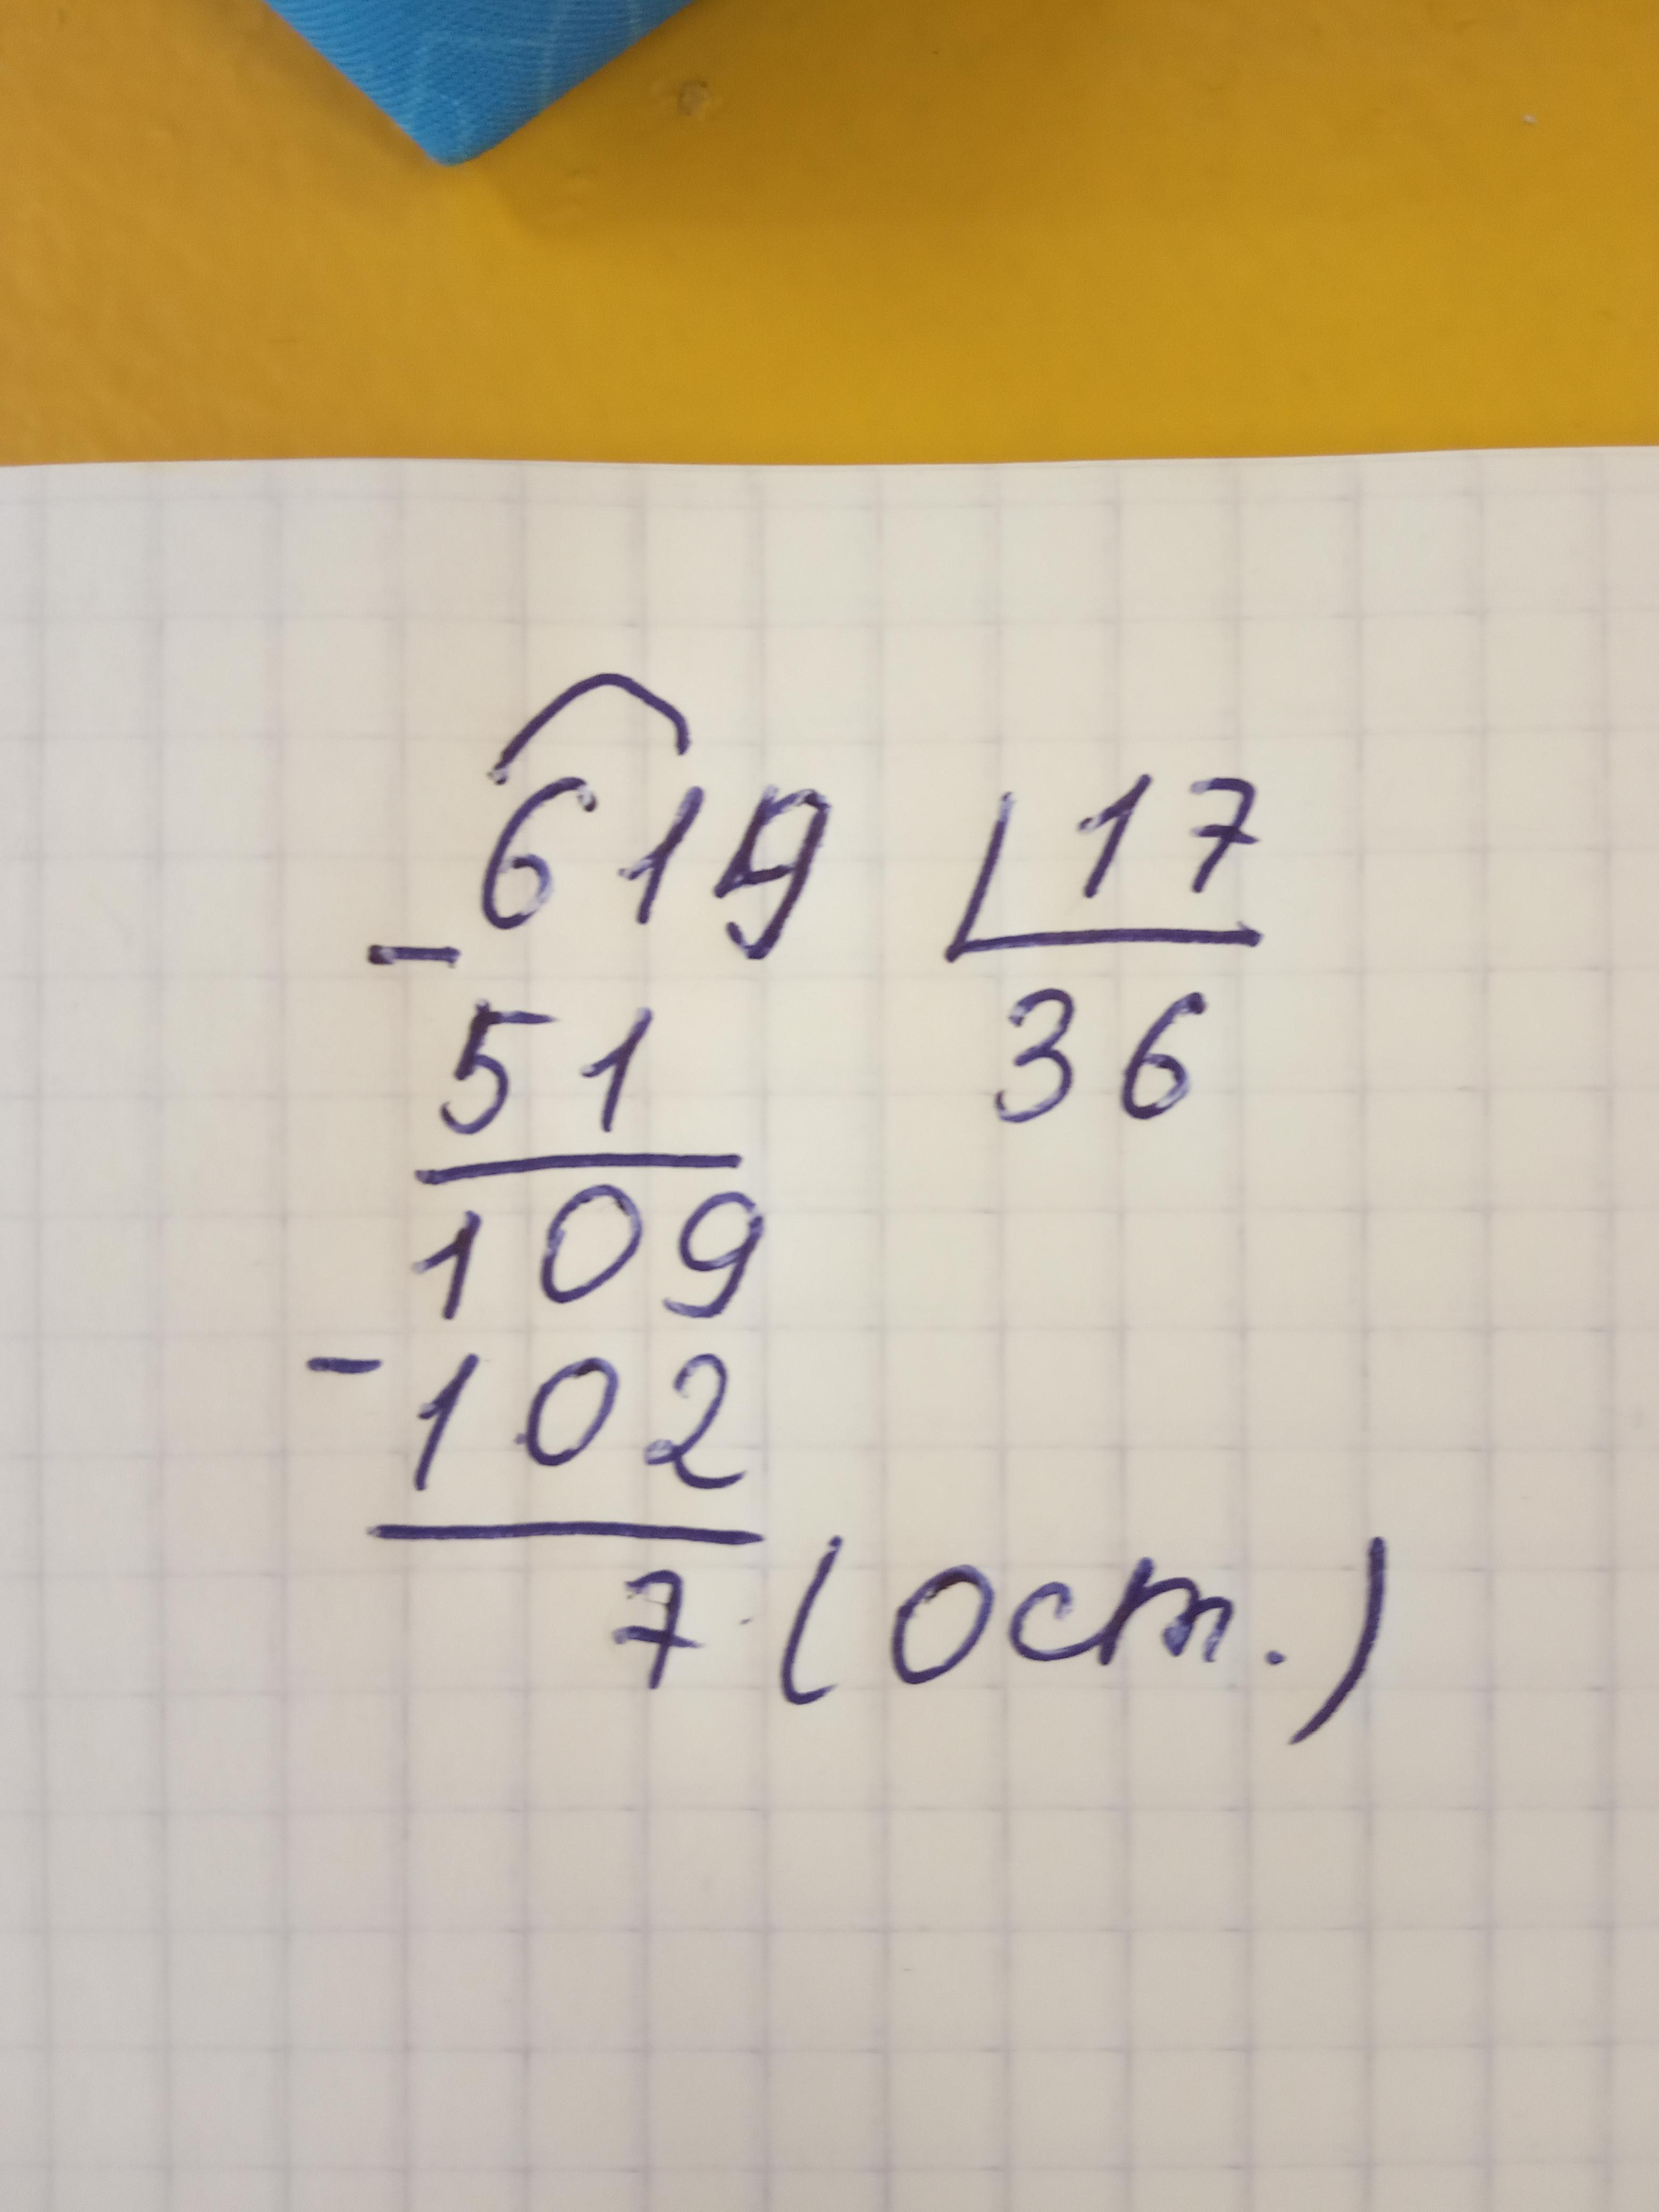 619 17
- 36
51
109
- 102
7 (ост.)